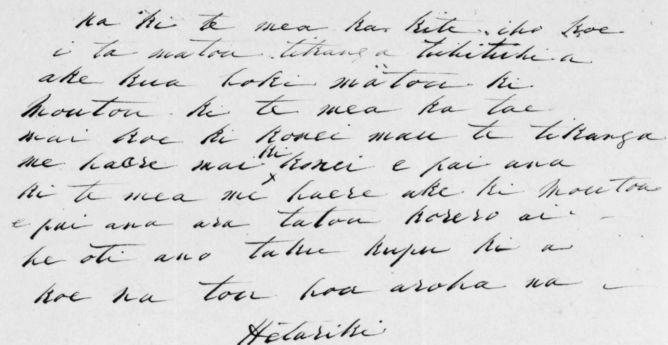 na ki te mea ka kite iho koe
i ta matou tikanga tuhituhia
ake kua hoki matou ki
Moutou ki te mea ka tae
mai koe ki konei mau te tikanga
me haere mai ki konei e pai ana
ki te mea me haere ake ki Moutoa
e pai ana ara tatou korero ai
he oti ano taku kupu ki a
koe na tou hoa aroha na
Hetariki